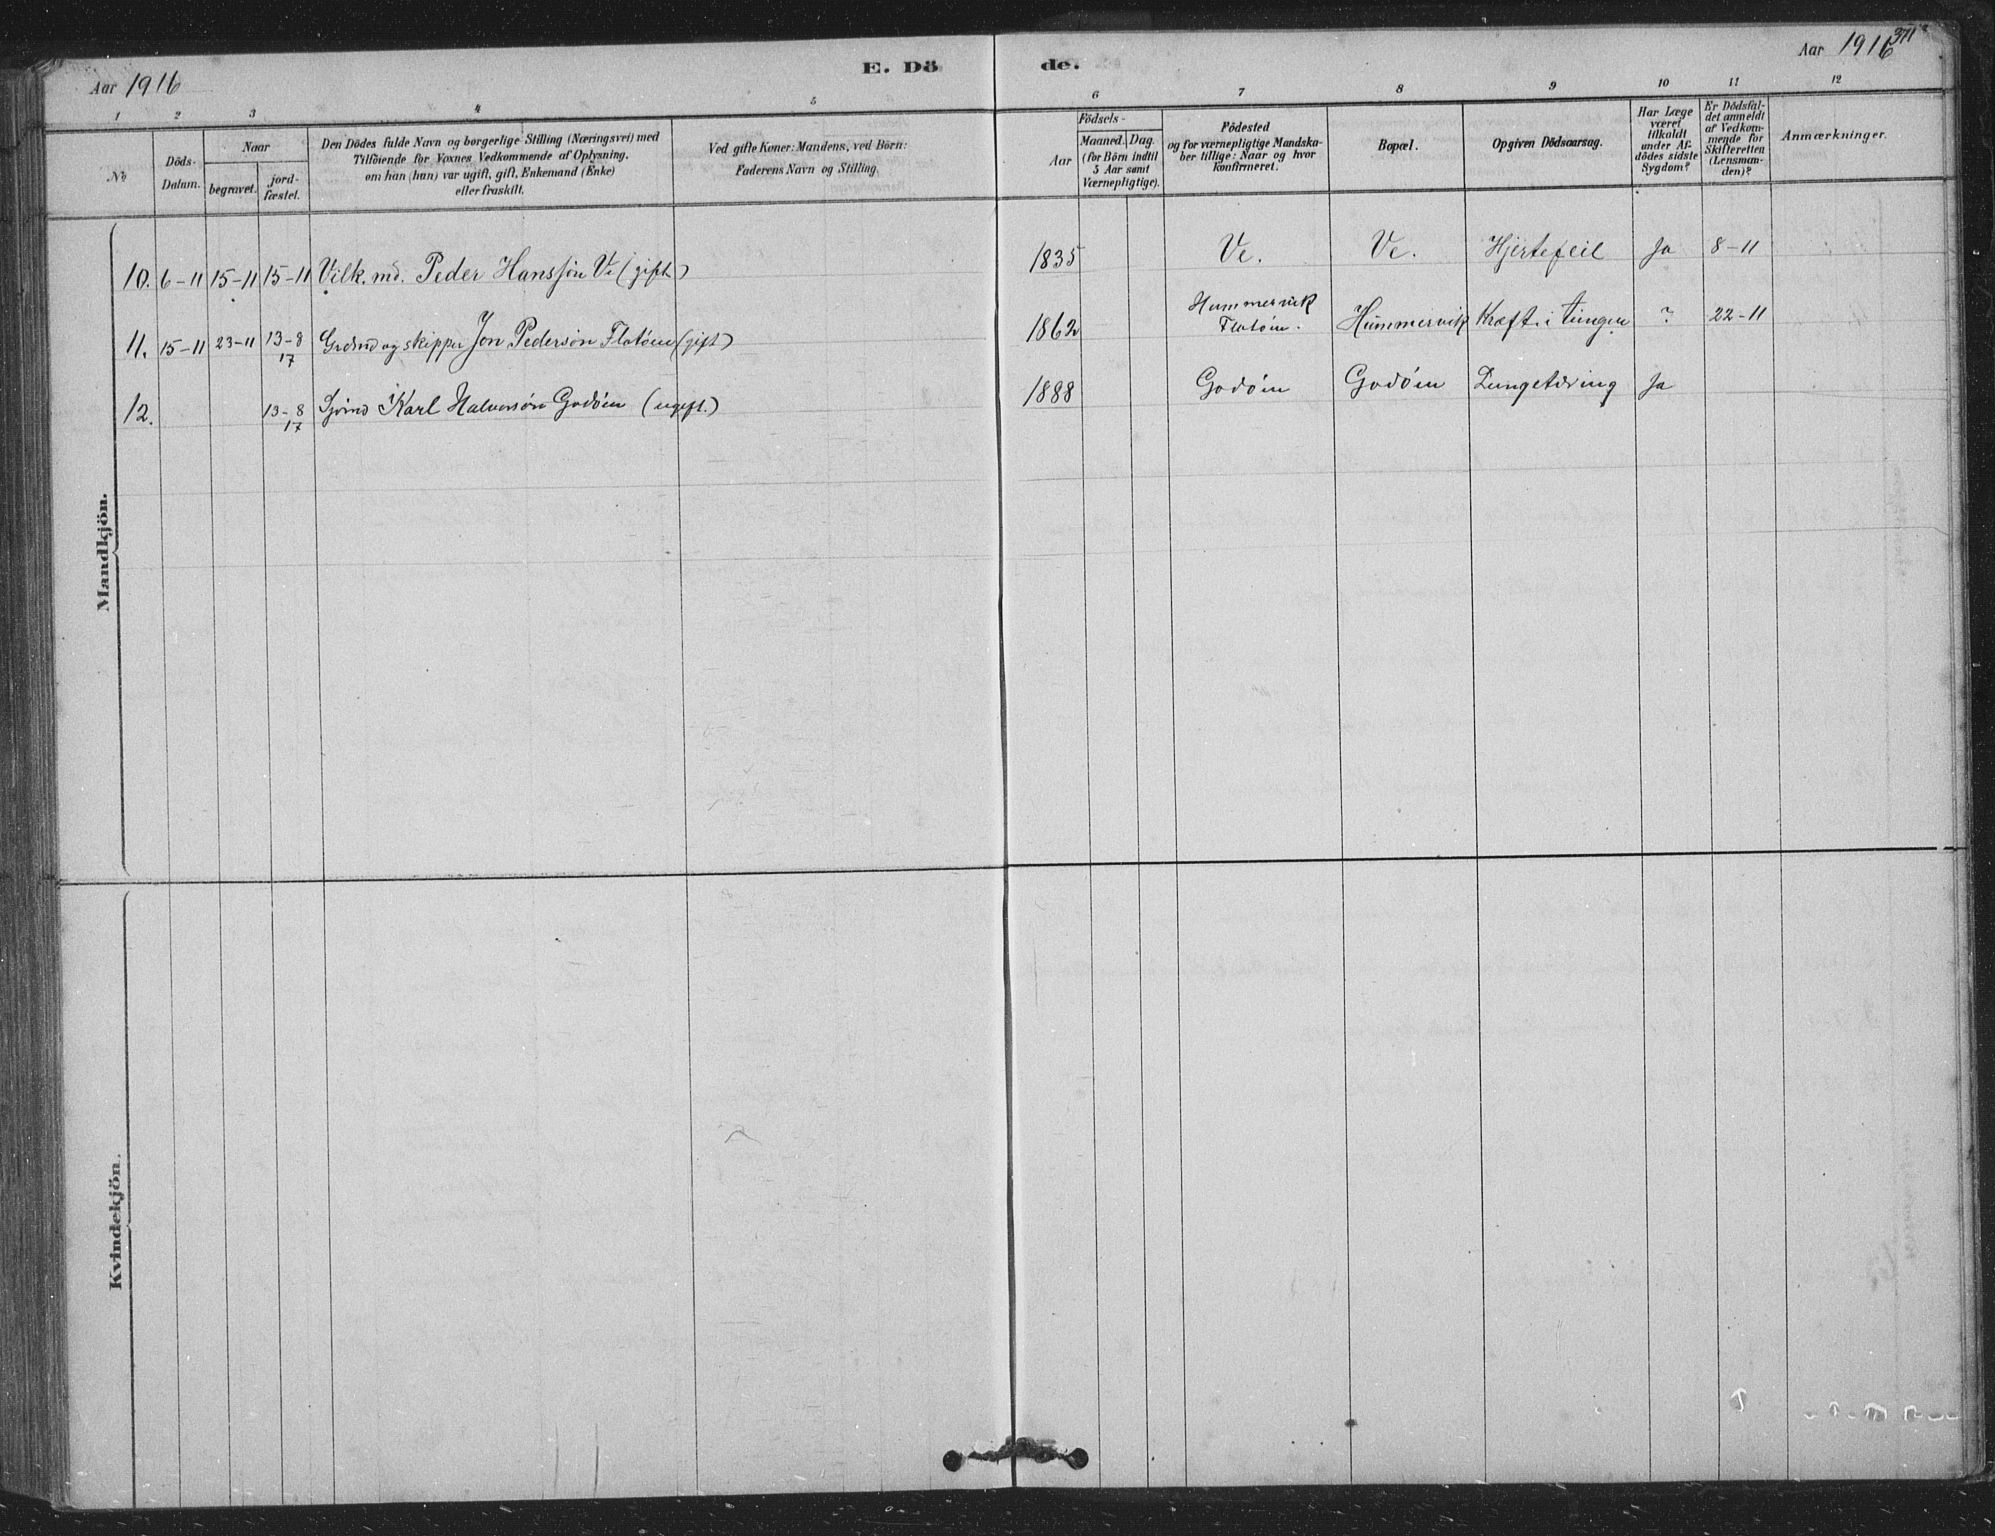 Aar 1916
E. Dö
de.
Aar 1916
371
1 2 3 4 5 6 7 8 9 10 11 12
No
Döds-
Datum.
Naar
begravet.
jord-
fæstet.
Den Dödes fulde Navn og borgerlige Stilling (Næringsvei) med
Tilföiende for Voxnes Vedkommende af Oplysning,
om han (hun) var ugift, gift, Enkemand (Enke)
eller fraskilt.
Ved gifte Koner: Mandens, ved Börn:
Faderens Navn og Stilling.
Födsels-
Aar
Maaned. Dag.
(for Börn indtil
5 Aar samt
Værnepligtige).
Födested
og for værnepligtige Mandska-
ber tillige: Naar og hvor
konfirmeret.
Bopæl.
Opgiven Dödsaarsag.
Har Læge
været
tilkaldt
under Af-
dödes sidste
Sygdom?
Er Dödsfal-
det anmeldt
af Vedkom-
mende for
Skifteretten
(Lensman-
den)?
Anmærkninger.
Mandkjön.
10. 6-11 15-11 15-11 Vilk. md. Peder Hansson Ve (gift) 1835 Ve. Ve. Hjertefeil Ja 8-11
11. 15-11 23-11 13-8 17 Grdmd og skipper Jon Pedersön Flatöen (gift) 1862 Hummervik Flatöen. Hummervik Kræft i tungen ? 22-11
12. 13-8 17 Karl Halvorsön Godöen (ugift.) 1888 Godöen Godöen Lungetæring Ja
Kvindekjön.